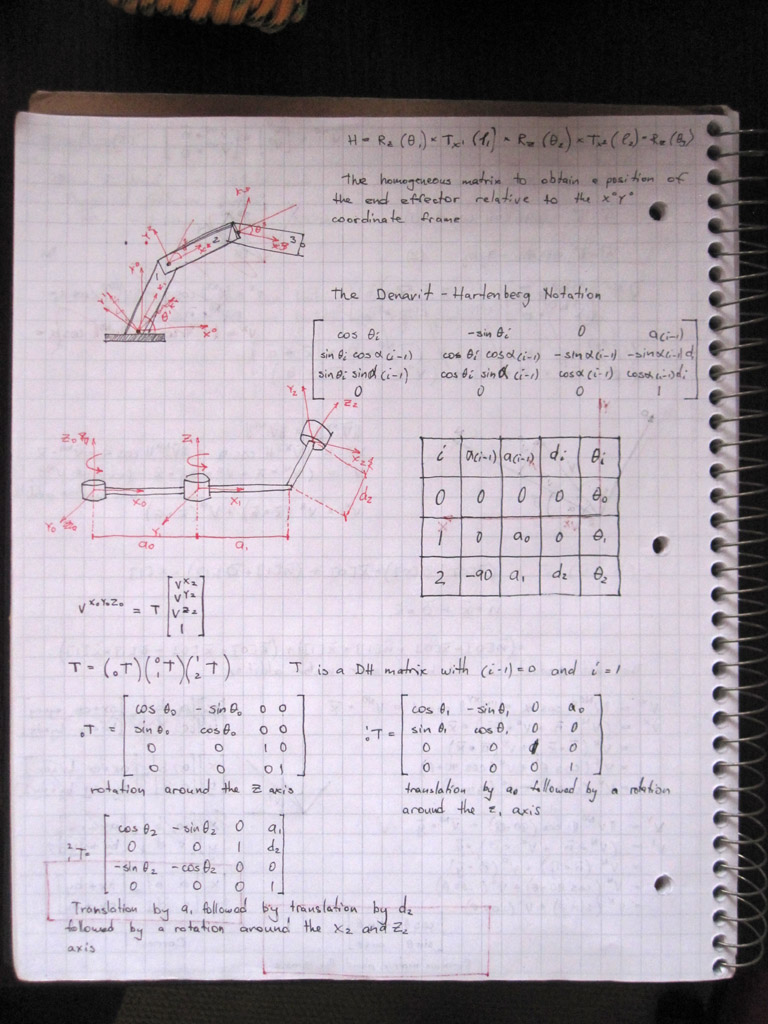 H = Rz (θ₁) × Tx¹ (l₁) × Rz (θ₂) × Tx² (l₂) × Rz (θ₃)
The homogeneous matrix to obtain a position of
the end effector relative to the x⁰Y⁰
coordinate frame
The Denavit - Hartenberg Notation
cos θi -sin θi 0 a(i-1)
sin θi cos α(i-1) cos θi cos α(i-1) -sin α(i-1) -sin α(i-1) d
sin θi sin α(i-1) cos θi sin α(i-1) cos α(i-1) cos α(i-1) di
0 0 0 1
Y₂ Z₂
Z₀ Z₁
X₀ X₁ d₂
Y₀ Y₁
a₀ a₁
i α(i-1) a(i-1) di θi
0 0 0 0 θ₀
1 0 a₀ 0 θ₁
2 -90 a₁ d₂ θ₂
V^X₀Y₀Z₀ = T [V^X₂ V^Y₂ V^Z₂ 1]
T = (₀T)(⁰₁T)(¹₂T) T is a DH matrix with (i-1)=0 and i=1
₀T =
cos θ₀ -sin θ₀ 0 0
sin θ₀ cos θ₀ 0 0
0 0 1 0
0 0 0 1
rotation around the z axis
¹₀T =
cos θ₁ -sin θ₁ 0 a₀
sin θ₁ cos θ₁ 0 0
0 0 1 0
0 0 0 1
translation by a₀ followed by a rotation
around the z₁ axis
²₁T =
cos θ₂ -sin θ₂ 0 a₁
0 0 1 d₂
-sin θ₂ -cos θ₂ 0 0
0 0 0 1
Translation by a₁ followed by translation by d₂
followed by a rotation around the x₂ and Z₂
axis